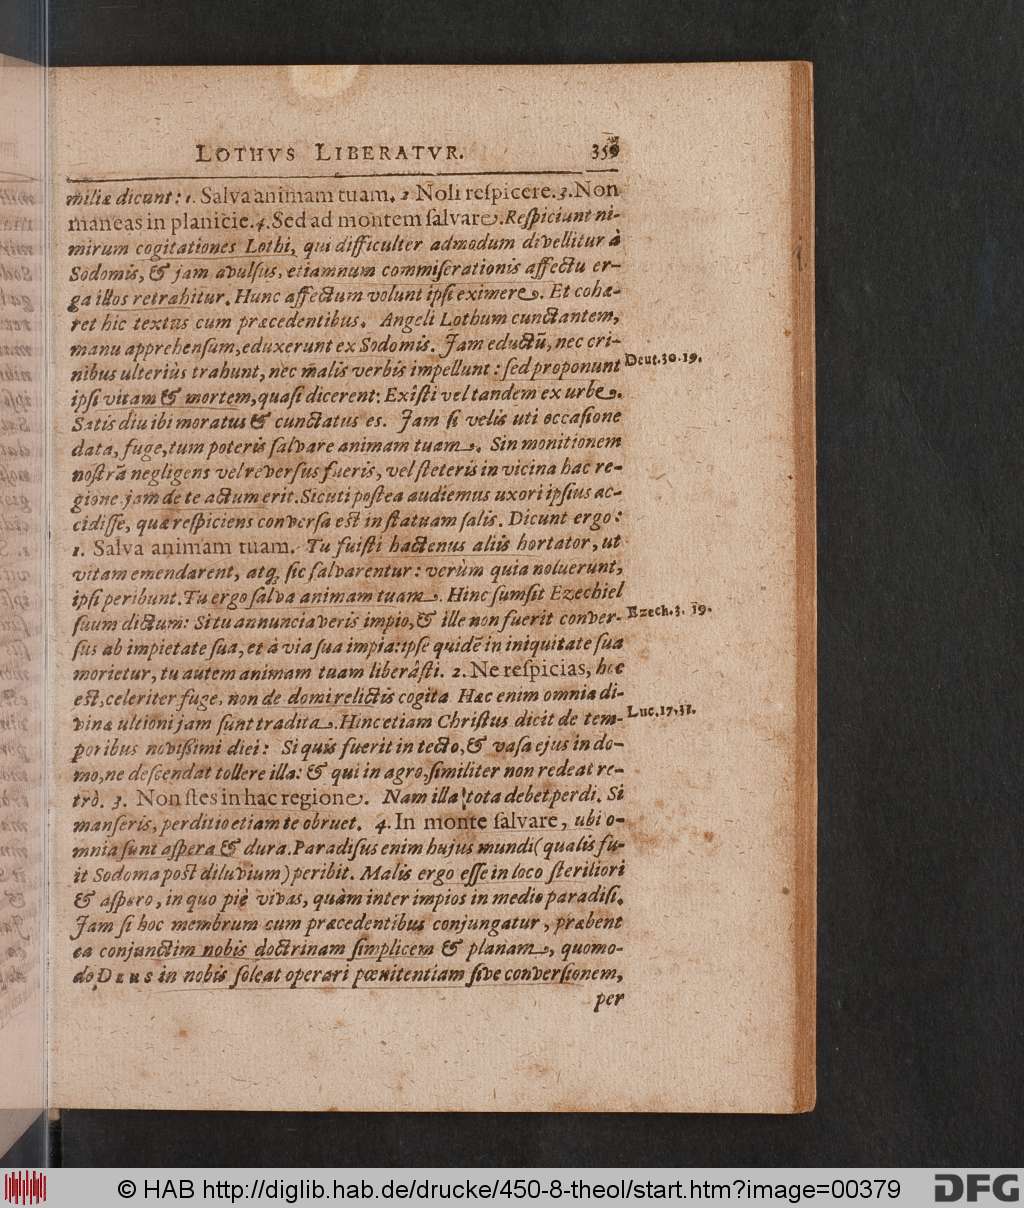 LOTHVS LIBERATVR. 359
miliæ dicunt: 1. Salva animam tuam. 2 Noli reſpicere. 3. Non
maneas in planicie. 4. Sed ad montem ſalvare. Reſpiciunt ni-
mirum cogitationes Lothi, qui difficulter admodum divellitur à
Sodomis, & jam avulſus, etiamnum commiſerationis affectu er-
ga illos retrahitur. Hunc affectum volunt ipſi eximere. Et cohæ-
ret hic textus cum præcedentibus. Angeli Lothum cunctantem,
manu apprehenſum, eduxerunt ex Sodomis. Jam eductũ, nec cri-
nibus ulteriùs trahunt, nec malis verbis impellunt: ſed proponunt
Deut. 30. 19.
ipſi vitam & mortem, quaſi dicerent: Exiſti vel tandem ex urbe.
Satis diu ibi moratus & cunctatus es. Jam ſi velis uti occaſione
data, fuge, tum poteris ſalvare animam tuam. Sin monitionem
noſtrã negligens vel reverſus fueris, vel ſteteris in vicina hac re-
gione jam de te actum erit. Sicuti poſtea audiemus uxori ipſius ac-
cidiſſe, quæ reſpiciens converſa eſt in ſtatuam ſalis. Dicunt ergo:
1. Salva animam tuam. Tu fuiſti hactenus aliis hortator, ut
vitam emendarent, atq; ſic ſalvarentur: verùm quia noluerunt,
ipſi peribunt. Tu ergo ſalva animam tuam. Hinc ſumſit Ezechiel
ſuum dictum: Si tu annunciaveris impio, & ille non fuerit conver-
Ezech. 3. 19.
ſus ab impietate ſua, et à via ſua impia: ipſe quidẽ in iniquitate ſua
morietur, tu autem animam tuam liberâſti. 2. Ne reſpicias, hoc
eſt, celeriter fuge, non de domi relictis cogita Hæc enim omnia di-
vinæ ultioni jam ſunt tradita. Hinc etiam Chriſtus dicit de tem-
Luc. 17. 31.
poribus noviſſimi diei: Si quis fuerit in tecto, & vaſa ejus in do-
mo, ne deſcendat tollere illa: & qui in agro, ſimiliter non redeat re-
trò. 3. Non ſtes in hac regione. Nam illa tota debet perdi. Si
manſeris, perditio etiam te obruet. 4. In monte ſalvare, ubi o-
mnia ſunt aſpera & dura. Paradiſus enim hujus mundi (qualis fu-
it Sodoma poſt diluvium) peribit. Malis ergo eſſe in loco ſteriliori
& aſpero, in quo piè vivas, quàm inter impios in medio paradiſi.
Jam ſi hoc membrum cum præcedentibus conjungatur, præbent
ea conjunctim nobis doctrinam ſimplicem & planam, quomo-
do DEUS in nobis ſoleat operari pœnitentiam ſive converſionem,
per
© HAB http://diglib.hab.de/drucke/450-8-theol/start.htm?image=00379
DFG